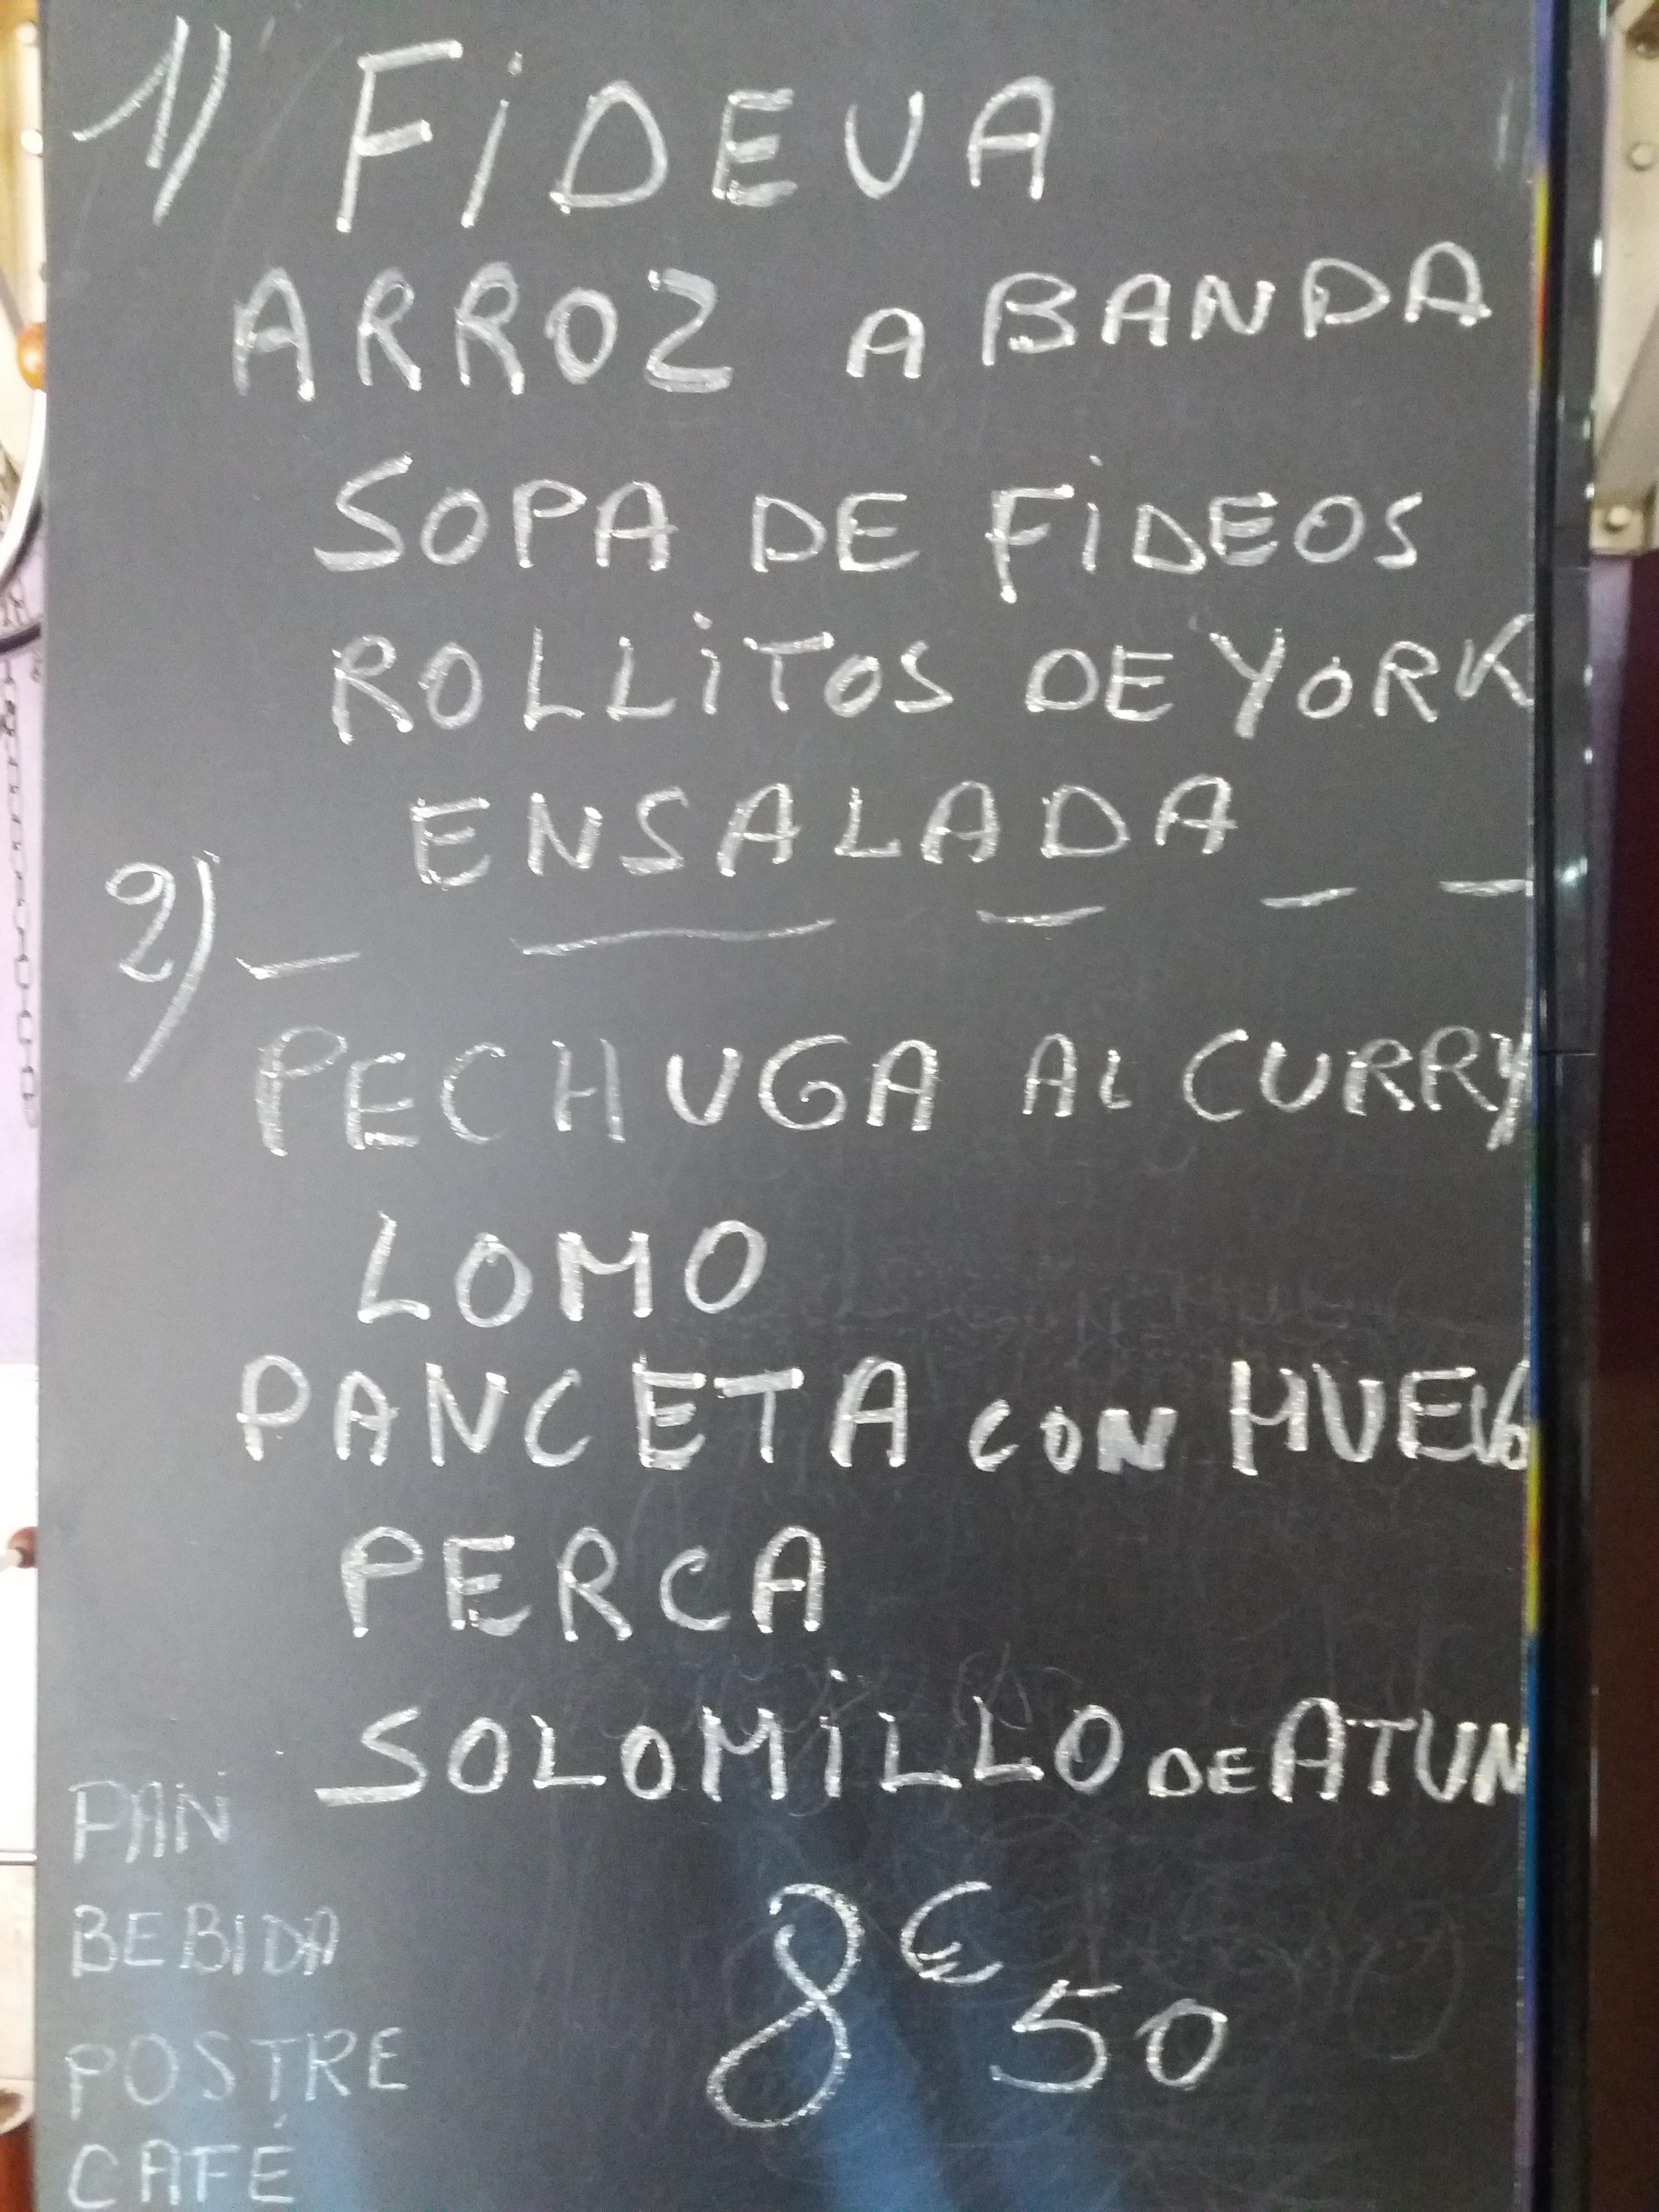 1) FiDEUA
ARROZ A BANDA
SOPA DE FiDEOS
ROLLiTOS DE YORK
ENSALADA
2)
PECHUGA AL CURRY
LOMO
PANCETA CON HUEVO
PERCA
SOLOMiLLO DE ATUN
PAN
BEBIDA
POSTRE
CAFÉ
8€50